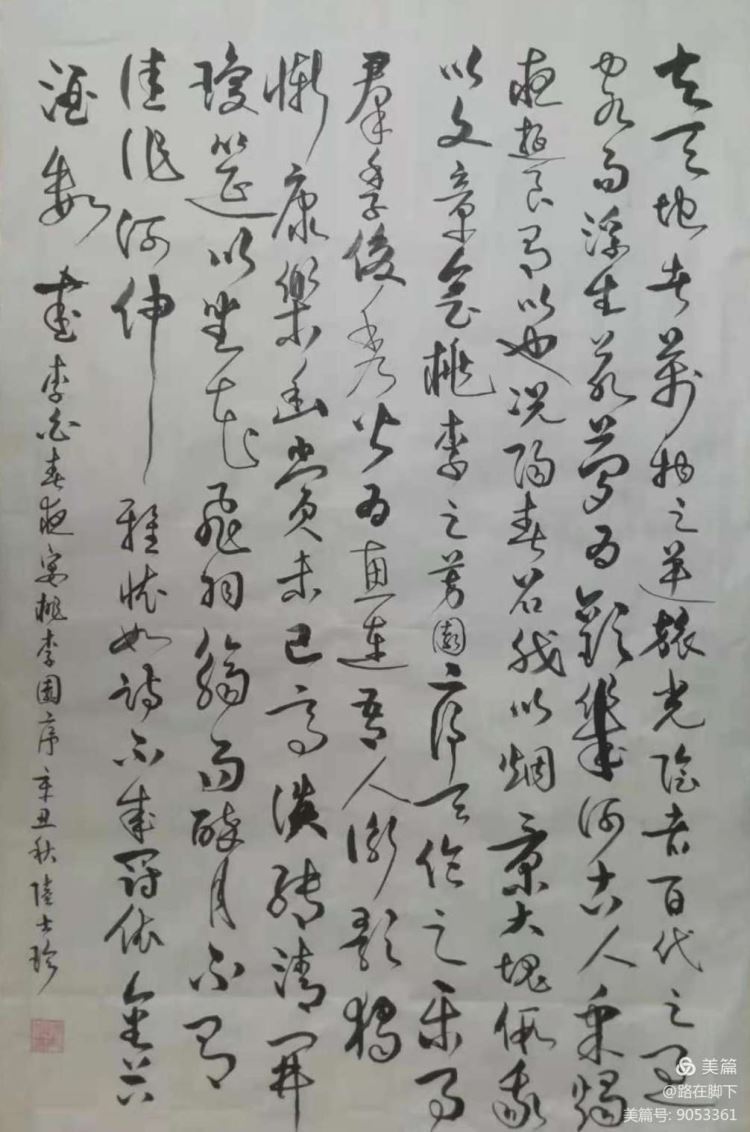 夫天地者萬物之逆旅光陰者百代之過
客而浮生若夢為歡幾何古人秉燭
夜遊良有以也況陽春召我以烟景大塊假我
以文章會桃李之芳園序天倫之樂事
羣季俊秀皆為惠連吾人詠歌獨
慚康樂幽賞未已高談轉清開
瓊筵以坐花飛羽觴而醉月不有
佳作何伸雅懷如詩不成罰依金谷
酒數 書李白春夜宴桃李園序辛丑秋陸士珍
美篇
@路在脚下
美篇号: 9053361